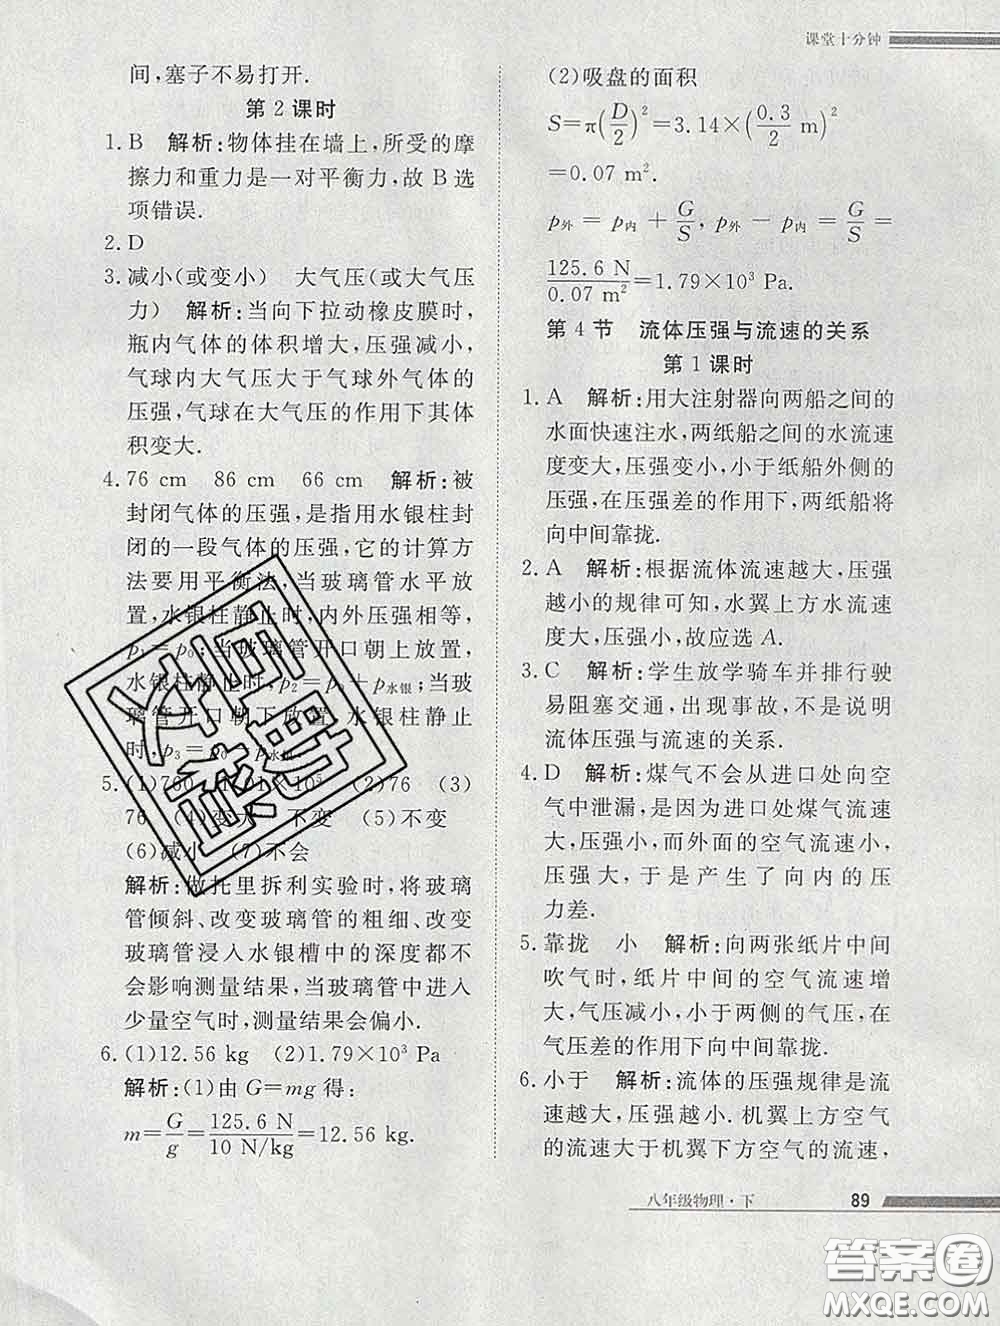 课堂十分钟
间,塞子不易打开.
第2课时
1.B 解析:物体挂在墙上,所受的摩
擦力和重力是一对平衡力,故B选
项错误.
2.D
3.减小(或变小) 大气压(或大气压
力) 解析:当向下拉动橡皮膜时,
瓶内气体的体积增大,压强减小,
气球内大气压大于气球外气体的
压强,气球在大气压的作用下其体
积变大.
4.76 cm 86 cm 66 cm 解析:被
封闭气体的压强,是指用水银柱封
闭的一段气体的压强,它的计算方
法要用平衡法,当玻璃管水平放
置,水银柱静止时,内外压强相等,
p₁=p₀;当玻璃管开口朝上放置,
水银柱静止时,p₂=p₀+p水银;当玻
璃管开口朝下放置,水银柱静止
时,p₃=p₀-p水银.
5.(1)760 1.01×10⁵ (2)76 (3)
76 (4)变大 不变 (5)不变
(6)减小 (7)不会
解析:做托里拆利实验时,将玻璃
管倾斜、改变玻璃管的粗细、改变
玻璃管浸入水银槽中的深度都不
会影响测量结果,当玻璃管中进入
少量空气时,测量结果会偏小.
6.(1)12.56 kg (2)1.79×10³ Pa
解析:(1)由G=mg得:
m=G/g=125.6 N/10 N/kg=12.56 kg.
(2)吸盘的面积
S=π(D/2)²=3.14×(0.3/2 m)²
=0.07 m².
p外 = p内 + G/S, p外 - p内 = G/S =
125.6 N/0.07 m²=1.79×10³ Pa.
第4节 流体压强与流速的关系
第1课时
1.A 解析:用大注射器向两船之间的
水面快速注水,两纸船之间的水流速
度变大,压强变小,小于纸船外侧的
压强,在压强差的作用下,两纸船将
向中间靠拢.
2.A 解析:根据流体流速越大,压强
越小的规律可知,水翼上方水流速
度大,压强小,故应选A.
3.C 解析:学生放学骑车并排行驶
易阻塞交通,出现事故,不是说明
流体压强与流速的关系.
4.D 解析:煤气不会从进口处向空
气中泄漏,是因为进口处煤气流速
大,压强小,而外面的空气流速小,
压强大,于是产生了向内的压
力差.
5.靠拢 小 解析:向两张纸片中间
吹气时,纸片中间的空气流速增
大,气压减小,小于两侧的气压,在
气压差的作用下向中间靠拢.
6.小于 解析:流体的压强规律是流
速越大,压强越小.机翼上方空气
的流速大于机翼下方空气的流速,
八年级物理·下 89
答案圈
MXQE.COM